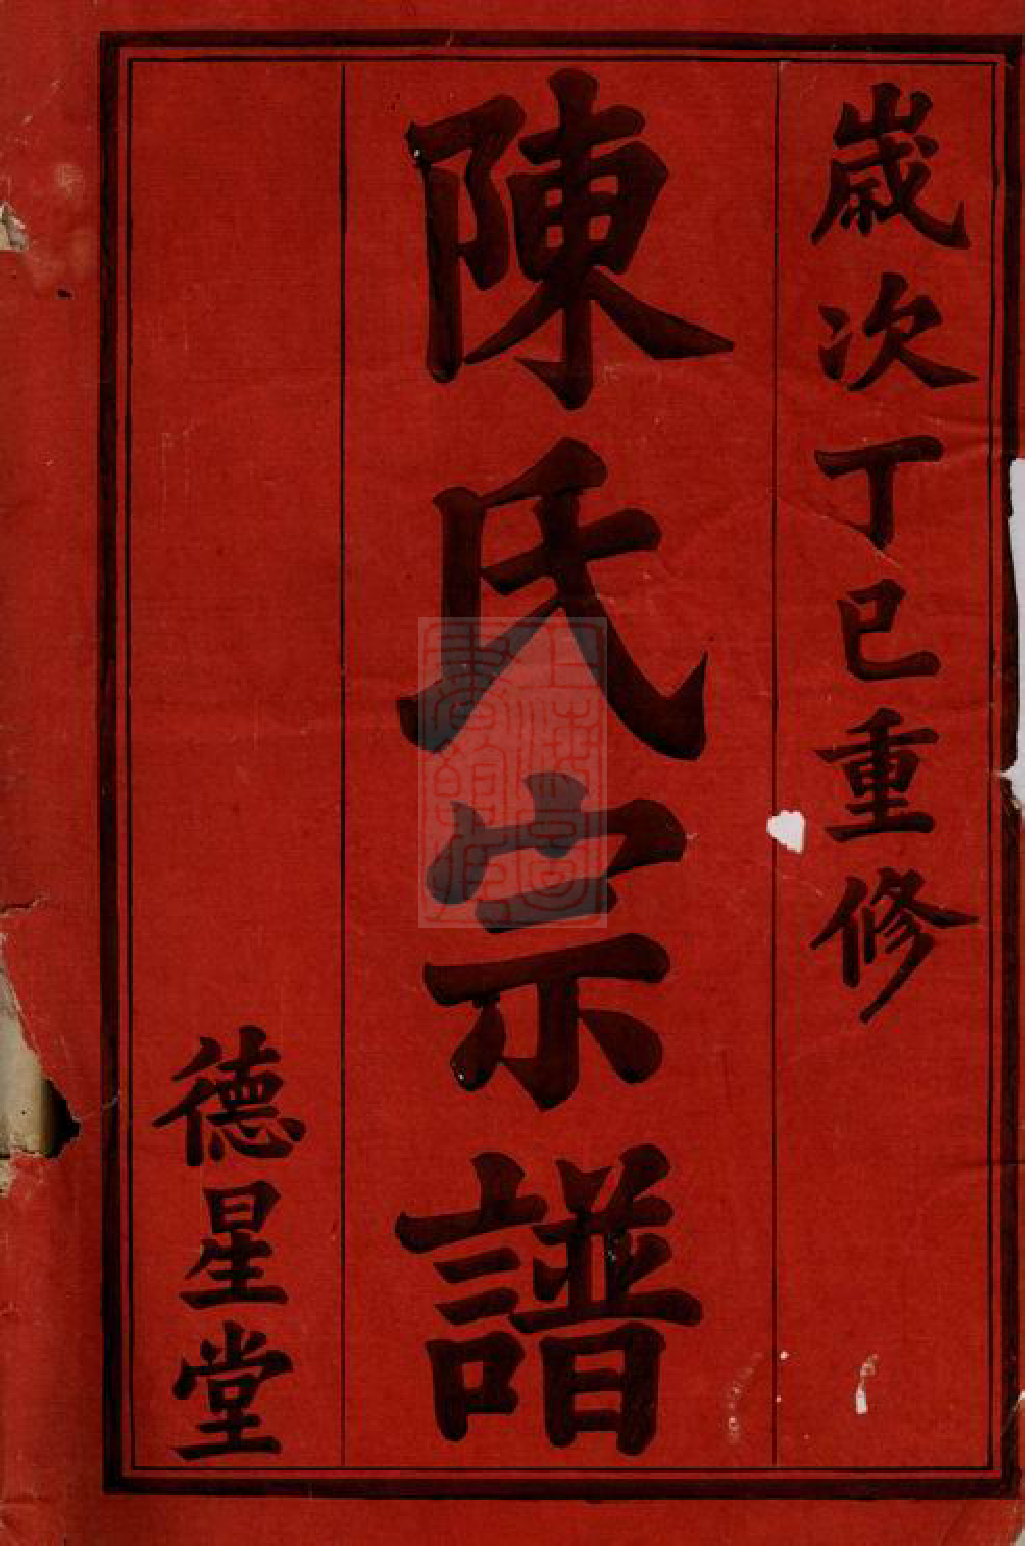 歲次丁巳重修
陳氏宗譜
德星堂